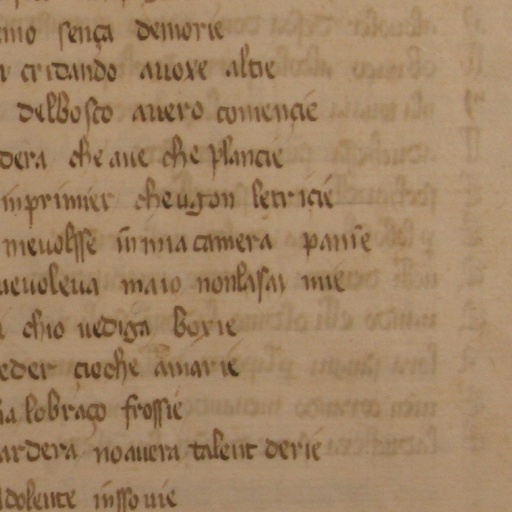 emo sença demorie
cridando avoxe altie
delbosco avero començie
dera che ave che plancie
inprimier che ugon letricié
mevolisse in mia camera
uevoleva maio nonlasai mie
chio vediga boxie
eder çioche amarie
lobraço frossié
ardera noavera talent derie
dolente inssonie